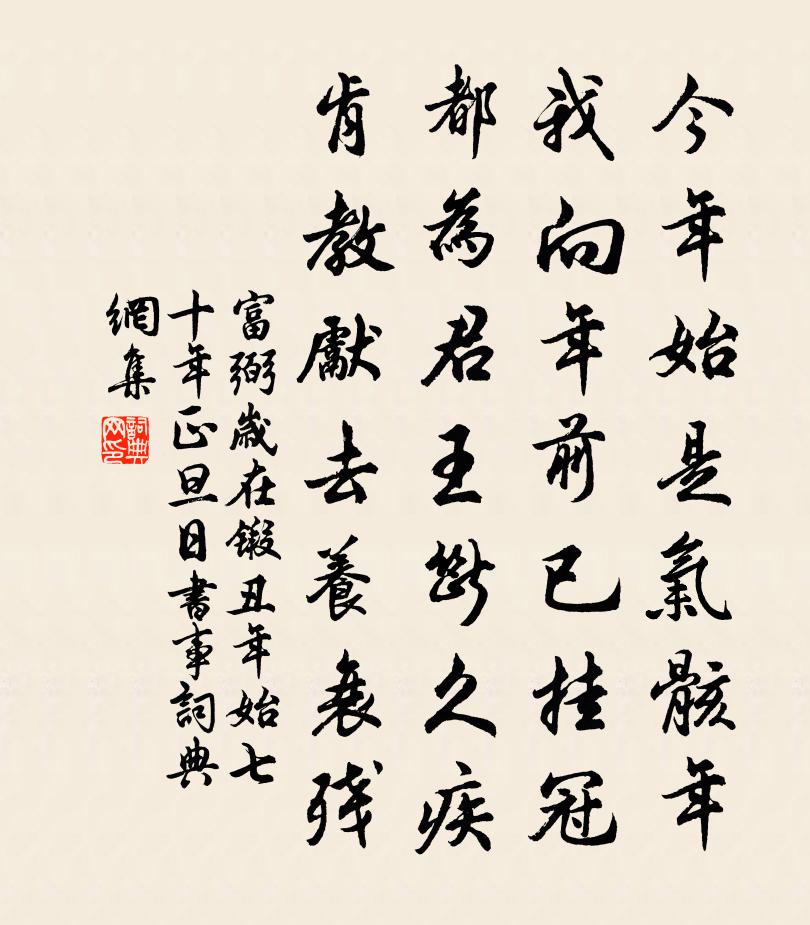 今年始是氣骸年
我向年前已挂冠
都為君王斷久疾
肯教獻去養衰残
富弼歲在鍛丑年始七
十年正旦日書事詞典
網集
詞典
网印